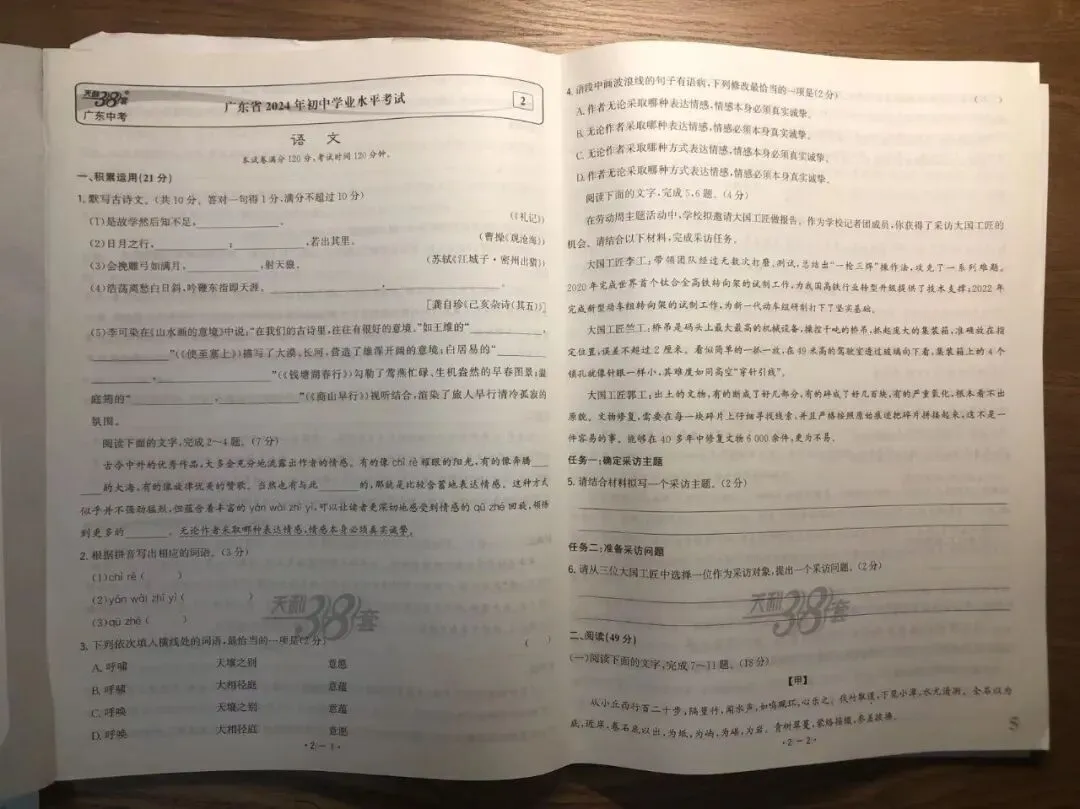 天利38套
广东中考
广东省2024年初中学业水平考试
2
语 文
本试卷满分120分,考试时间120分钟。
一、积累运用(21分)
1.默写古诗文。(共10分。答对一句得1分,满分不超过10分)
(1)是故学然后知不足,____________。 (《礼记》)
(2)日月之行,____________;____________,若出其里。 (曹操《观沧海》)
(3)会挽雕弓如满月,____________,射天狼。 (苏轼《江城子·密州出猎》)
(4)浩荡离愁白日斜,吟鞭东指即天涯。____________,____________。
[龚自珍《己亥杂诗(其五)》]
(5)李可染在《山水画的意境》中说:“在我们的古诗里,往往有很好的意境。”如王维的“____________,
____________”(《使至塞上》)描写了大漠、长河,营造了雄浑开阔的意境;白居易的“____________
____________,____________”(《钱塘湖春行》)勾勒了莺燕忙碌、生机盎然的早春图景;温
庭筠的“____________,____________”(《商山早行》)视听结合,渲染了旅人早行清冷孤寂的
氛围。
阅读下面的文字,完成2~4题。(7分)
古今中外的优秀作品,大多会充分地流露出作者的情感。有的像 chì rè 耀眼的阳光,有的像奔腾__
__的大海,有的像旋律优美的赞歌。当然也有与此______的,那就是比较含蓄地表达情感。这种方式
似乎并不强劲猛烈,但蕴含着丰富的 yán wài zhī yì,可以让读者更深切地感受到情感的 qū zhé 回旋,领悟
到更多的______。无论作者采取哪种表达情感,情感本身必须真实诚挚。
2.根据拼音写出相应的词语。(3分)
(1)chì rè( )
(2)yán wài zhī yì( )
(3)qū zhé( )
3.下列依次填入横线处的词语,最恰当的一项是(2分) ( )
A.呼啸 天壤之别 意愿
B.呼啸 大相径庭 意蕴
C.呼唤 天壤之别 意蕴
D.呼唤 大相径庭 意愿
·2-1·
4.语段中画波浪线的句子有语病,下列修改最恰当的一项是(2分) ( )
A.作者无论采取哪种表达情感,情感本身必须真实诚挚。
B.无论作者采取哪种表达情感,情感必须本身真实诚挚。
C.无论作者采取哪种方式表达情感,情感本身必须真实诚挚。
D.作者无论采取哪种方式表达情感,情感必须本身真实诚挚。
阅读下面的文字,完成5、6题。(4分)
在劳动周主题活动中,学校拟邀请大国工匠做报告。作为学校记者团成员,你获得了采访大国工匠的
机会。请结合以下材料,完成采访任务。
大国工匠李工:带领团队经过无数次打磨、测试,总结出“一枪三焊”操作法,攻克了一系列难题。
2020年完成世界首个钛合金高铁转向架的试制工作,为我国高铁行业转型升级提供了技术支撑;2022年
完成新型动车组转向架的试制工作,为新一代动车组研制打下了坚实基础。
大国工匠竺工:桥吊是码头上最大最高的机械设备,操控千吨的桥吊,抓起庞大的集装箱,准确放在指
定位置,误差不超过2厘米。看似简单的一抓一放,在49米高的驾驶室透过玻璃向下看,集装箱上的4个
锁孔就像针眼一样小,其难度如同高空“穿针引线”。
大国工匠郭工:出土的文物,有的断成了好几部分,有的碎成了好几百块,有的严重氧化,根本看不出
原貌。文物修复,需要在每一块碎片上仔细寻找线索,并且严格按照原始痕迹把碎片拼接起来,这不是一
件容易的事。能够在40多年中修复文物6000余件,更为不易。
任务一:确定采访主题
5.请结合材料拟写一个采访主题。(2分)
任务二:准备采访问题
6.请从三位大国工匠中选择一位作为采访对象,提出一个采访问题。(2分)
天利38套
天利38套
二、阅读(49分)
(一)阅读下面的文字,完成7~11题。(18分)
【甲】
从小丘西行百二十步,隔篁竹,闻水声,如鸣珮环,心乐之。伐竹取道,下见小潭,水尤清冽。全石以为
底,近岸,卷石底以出,为坻,为屿,为嵁,为岩。青树翠蔓,蒙络摇缀,参差披拂。
·2-2·
5